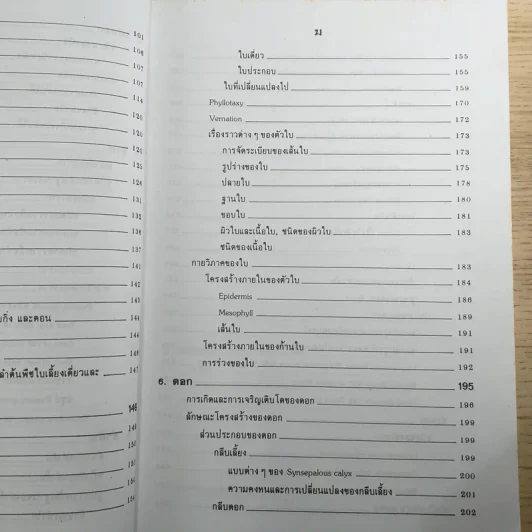 101
106
107
107
114
120
120
125
126
131
132
136
137
141
142
143
กิ่ง และตอน 144
146
ลำต้นพืชใบเลี้ยงเดี่ยวและ 147
148
149
150
ฆ
ใบเดี่ยว 155
ใบประกอบ 155
ใบที่เปลี่ยนแปลงไป 159
Phyllotaxy 170
Vernation 172
เรื่องราวต่าง ๆ ของตัวใบ 173
การจัดระเบียบของเส้นใบ 173
รูปร่างของใบ 175
ปลายใบ 178
ฐานใบ 180
ขอบใบ 181
ผิวใบและเนื้อใบ, ชนิดของผิวใบ 183
ชนิดของเนื้อใบ
กายวิภาคของใบ 183
โครงสร้างภายในของตัวใบ 184
Epidermis 186
Mesophyll 189
เส้นใบ 191
โครงสร้างภายในของก้านใบ 191
การร่วงของใบ 192
6. ดอก 195
การเกิดและการเจริญเติบโตของดอก 196
ลักษณะโครงสร้างของดอก 199
ส่วนประกอบของดอก 199
กลีบเลี้ยง 199
แบบต่าง ๆ ของ Synsepalous calyx 200
ความคงทนและการเปลี่ยนแปลงของกลีบเลี้ยง 201
กลีบดอก 202